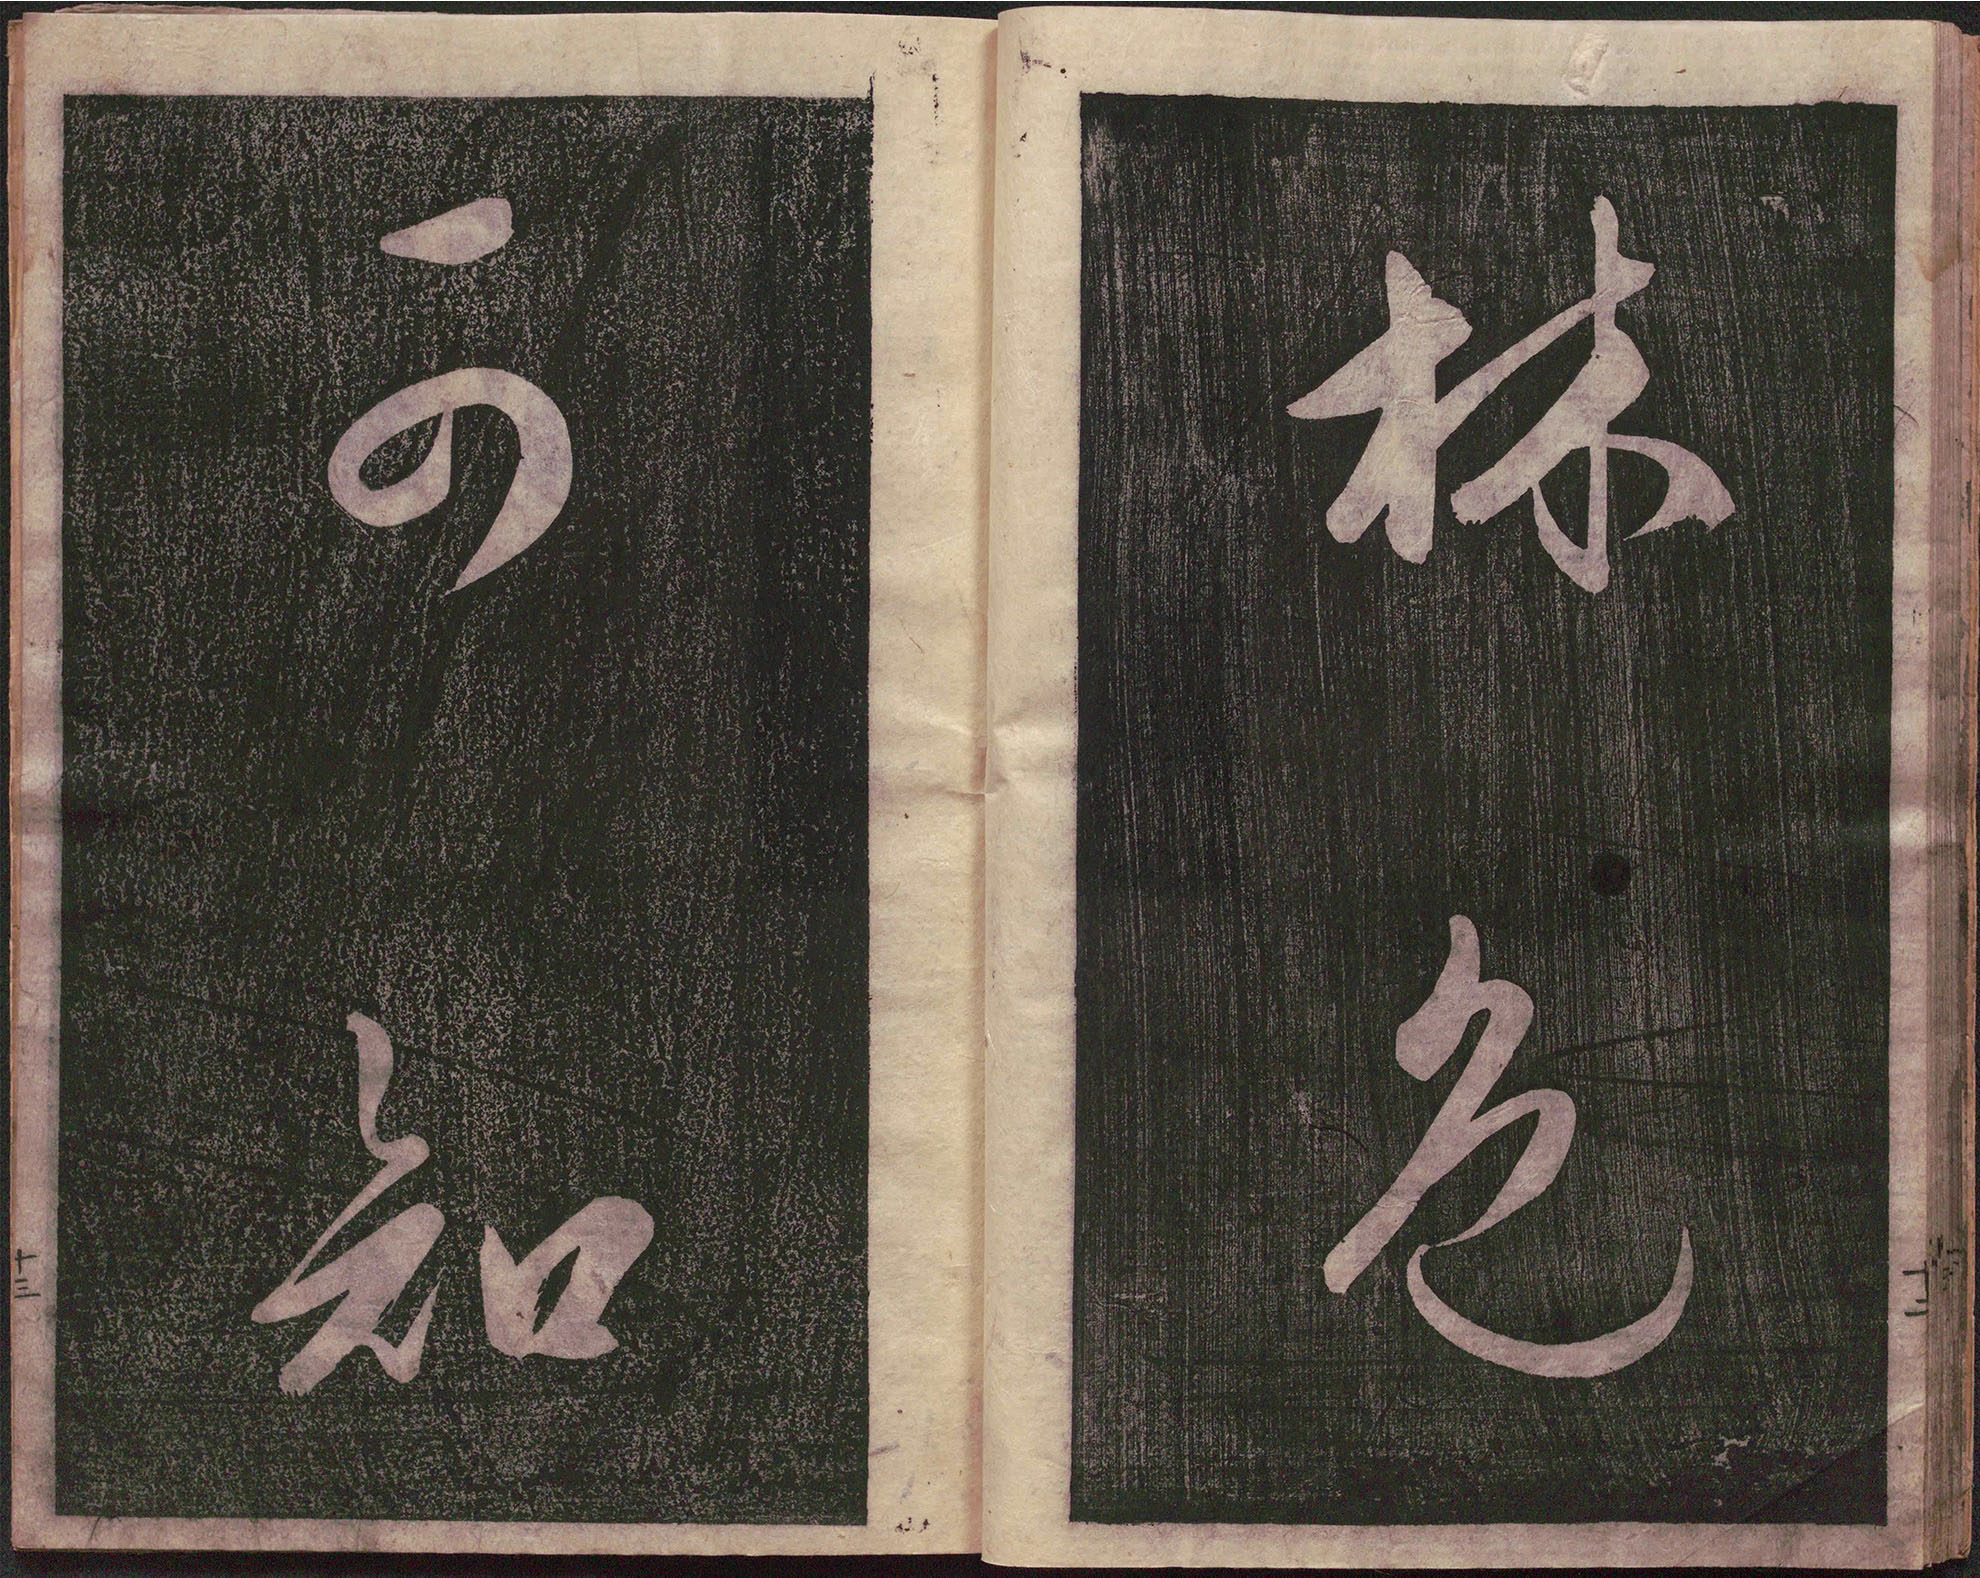 林色
可知
十二
十三